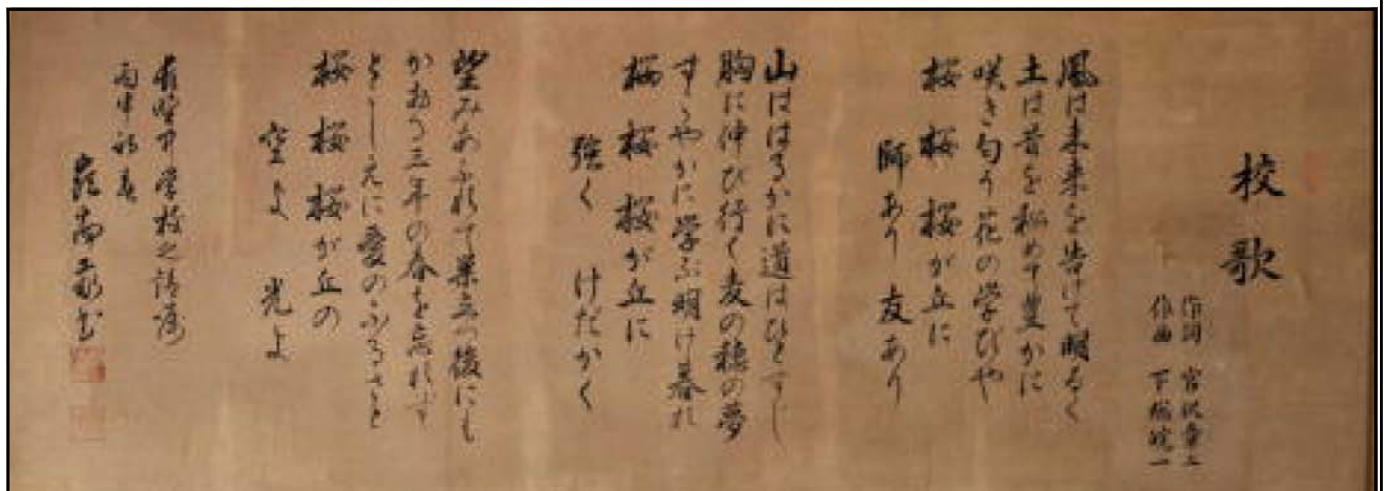 校歌
作詞 宮沢章二
作曲 下總皖一
風は未来を告げて明るく
土は昔を秘めて豊かに
咲き匂う花の学びや
桜 桜 桜が丘に
師あり 友あり
山ははるかに道はひとすじ
胸に伸び行く麦の穂の夢
すこやかに学ぶ明け暮れ
桜 桜 桜が丘に
強く けだかく
望みあふれて巣立つ後にも
かおる三年の春を忘れず
とこしえに愛のふるさと
桜 桜 桜が丘の
空よ 光よ
中学校之